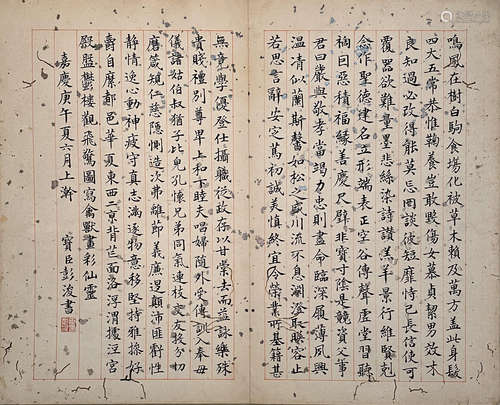 鳴鳳在樹白駒食場化被草木賴及萬方盖此身髮
四大五常恭惟鞠養豈敢毀傷女慕貞絜男效才
良知過必改得能莫忘罔談彼短靡恃己長信使可
覆器欲難量墨悲絲染詩讚羔羊景行維賢剋
念作聖德建名立形端表正空谷傳聲虛堂習聽
禍因惡積福緣善慶尺璧非寶寸陰是競資父事
君曰嚴與敬孝當竭力忠則盡命臨深履薄夙興
温凊似蘭斯馨如松之盛川流不息淵澄取暎容止
若思言辭安定篤初誠美慎終宜令榮業所基籍甚
無竟學優登仕攝職從政存以甘棠去而益詠樂殊
貴賤禮別尊卑上和下睦夫唱婦隨外受傅訓入奉母
儀諸姑伯叔猶子比兒孔懷兄弟同氣連枝交友投分切
磨箴規仁慈隱惻造次弗離節義廉退顛沛匪虧性
靜情逸心動神疲守真志滿逐物意移堅持雅操好
爵自縻都邑華夏東西二京背芒面洛浮渭據涇宮
殿盤鬱樓觀飛驚圖寫禽獸畫彩仙靈
嘉慶庚午夏六月上澣
寶臣彭浚書